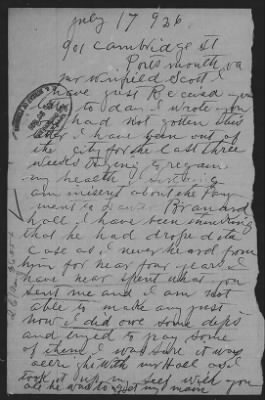 July 17 926
901 Cambridge St
Portsmouth, va
mr winfield Scott
I have just Received your
to day. I wrote you
had not gotten this
I have been out of
the city for the last three
weeks trying to regain
my health
am about the Pay
ment to Lawer Bran and
hall. I have been
that he had droped the
case as I never heard from
him for near four years I
have near spent what you
sent me and I am not
able to make any just
now I did owe some depts
and tryed to pay some
of them I was sure it was
all right with mr Hall as I
took it up my self with you
he was to get my